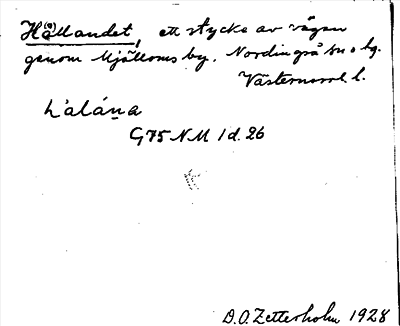 Hå(o)llandet, ett stycke av vägen
genom Mjälloms by. Nordingrå sn o hg.
Västernorrl. l.
hålána
G75 NM 1d. 26
D.O. Zetterholm 1928